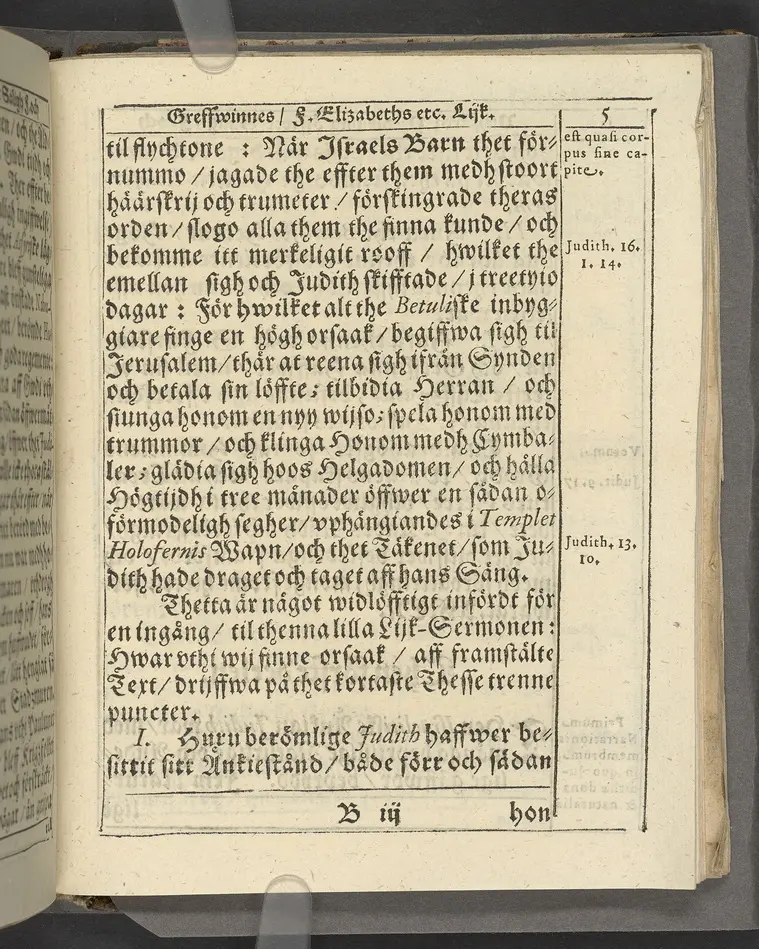 Greffwinnes / F. Elizabeths etc. Lijk.
5
til flychtone : När Israels Barn thet för-
nummo / jagade the effter them medh stoort
häärskrij och trumeter / förskingrade theras
orden / slogo alla them the finna kunde / och
bekomme itt merkeligit rooff / hwilket the
emellan sigh och Judith skifftade / j treetyio
dagar : För hwilket alt the Betuliske inbyg-
giare finge en högh orsaak / begiffwa sigh til
Jerusalem / thär at reena sigh ifrån Synden
och betala sin löffte; tilbidia Herran / och
siunga honom en nyy wijso; spela honom med
trummor / och klinga Honom medh Cymba-
ler; glädia sigh hoos Helgadomen / och hålla
Högtijdh i tree månader öffwer en sådan o-
förmodeligh segher / vphängiandes i Templet
Holofernis Wapn / och thet Täkenet / som Ju-
dith hade draget och taget aff hans Säng.
Thetta är något widlöfftigt infördt för
en ingång / til thenna lilla Lijk-Sermonen:
Hwar vthi wij finne orsaak / aff framstälte
Text / drijffwa på thet kortaste Thesse trenne
puncter.
I. Huru berömlige Judith haffwer be-
sittit sitt Änkiestånd / både förr och sådan
B iij
hon
est quasi cor-
pus sine ca-
pite.
Judith. 16.
1. 14.
Judith. 13.
10.